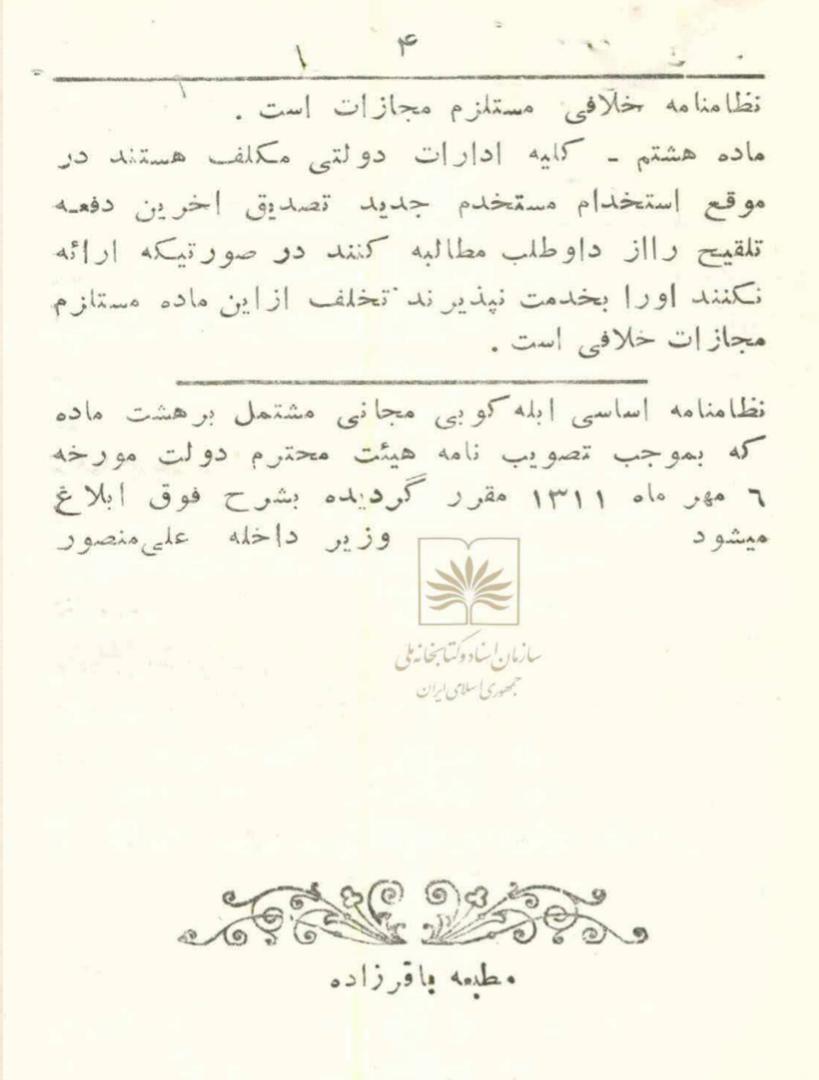 ۴
نظامنامه خلافی مستلزم مجازات است .
ماده هشتم - کلیه ادارات دولتی مکلف هستند در
موقع استخدام مستخدم جدید تصدیق اخرین دفعه
تلقیح رااز داوطلب مطالبه کنند در صورتیکه ارائه
نکنند اورا بخدمت نپذیرند تخلف ازاین ماده مستلزم
مجازات خلافی است .
نظامنامه اساسی ابله کوبی مجانی مشتمل برهشت ماده
که بموجب تصویب نامه هیئت محترم دولت مورخه
٦ مهر ماه ۱۳۱۱ مقرر گردیده بشرح فوق ابلاغ
میشود وزیر داخله علی‌منصور
سازمان اسناد و کتابخانه ملی
جمهوری اسلامی ایران
مطبعه باقرزاده